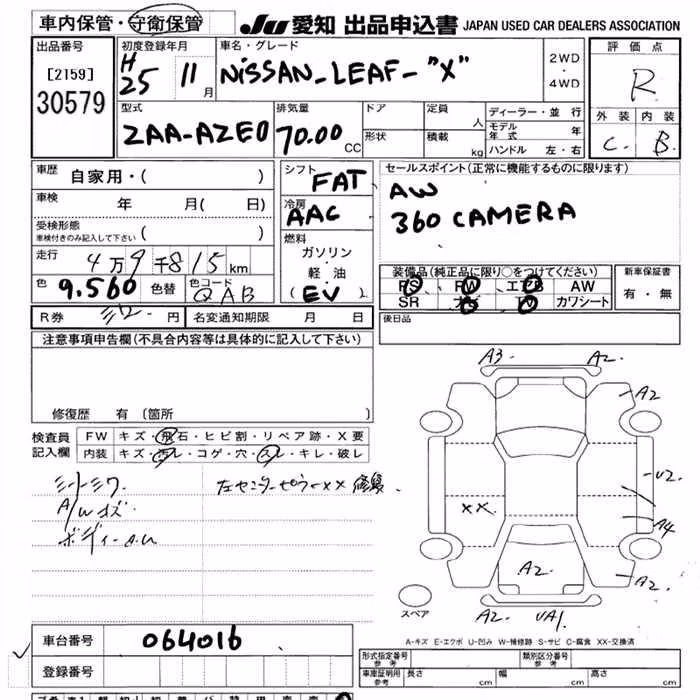 車内保管・守衛保管
JU 愛知 出品申込書 JAPAN USED CAR DEALERS ASSOCIATION
出品番号
[2159]
30579
初度登録年月
H
25 11 月
車名・グレード
NISSAN-LEAF-"X"
2WD
・
4WD
評価点
R
外装 内装
C. B.
型式
ZAA-AZE0
排気量
70.00 CC
ドア
形状
定員 人
積載 kg
ディーラー・並行
モデル年式 年
ハンドル 左・右
車歴 自家用・( )
車検 年 月( 日)
受検形態
車検付きのみ記入して下さい ( )
走行 4万9千815km
色 9.560 色替 色コード QAB
シフト FAT
冷房 AAC
燃料
ガソリン
・
軽・油
(EV)
セールスポイント(正常に機能するものに限ります)
AW
360 CAMERA
装備品(純正品に限り○をつけてください)
PS PW エアB AW
SR ナビ TV カワシート
新車保証書
有・無
後日品
R券 円 名変通知期限 月 日
注意事項申告欄(不具合内容等は具体的に記入して下さい)
修復歴 有 〔箇所 〕
検査員
記入欄
FW キズ・飛石・ヒビ割・リペア跡・X要
内装 キズ・汚レ・コゲ・穴・スレ・キレ・破レ
シートシワ
A/Wキズ
ボディーA.U
左センターピラーXX 修復.
A3. A2.
A2
U2.
XX.
A4
A2.
A2
A2. UA1.
スペア
A-キズ E-エクボ U-凹み W-補修跡 S-サビ C-腐食 XX-交換済
車台番号 064016
登録番号
形式指定番号
参考
類別区分番号
参考
車庫証明用
参考
長さ cm 幅 cm 高さ cm